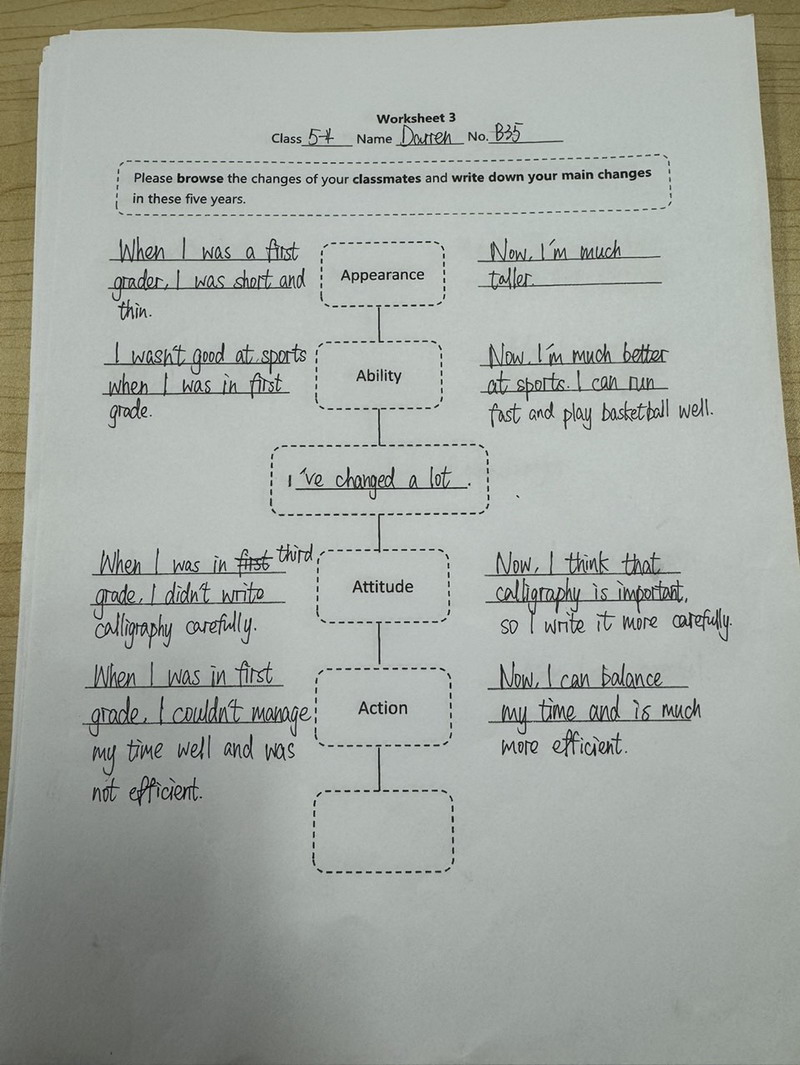 Worksheet 3
Class 5-4 Name Darren No. B35
Please browse the changes of your classmates and write down your main changes
in these five years.
When I was a first
grader, I was short and
thin.
Appearance
Now, I'm much
taller.
I wasn't good at sports
when I was in first
grade.
Ability
Now, I'm much better
at sports. I can run
fast and play basketball well.
I've changed a lot.
When I was in first third
grade, I didn't write
calligraphy carefully.
Attitude
Now, I think that
calligraphy is important,
so I write it more carefully.
When I was in first
grade, I couldn't manage
my time well and was
not efficient.
Action
Now, I can balance
my time and is much
more efficient.